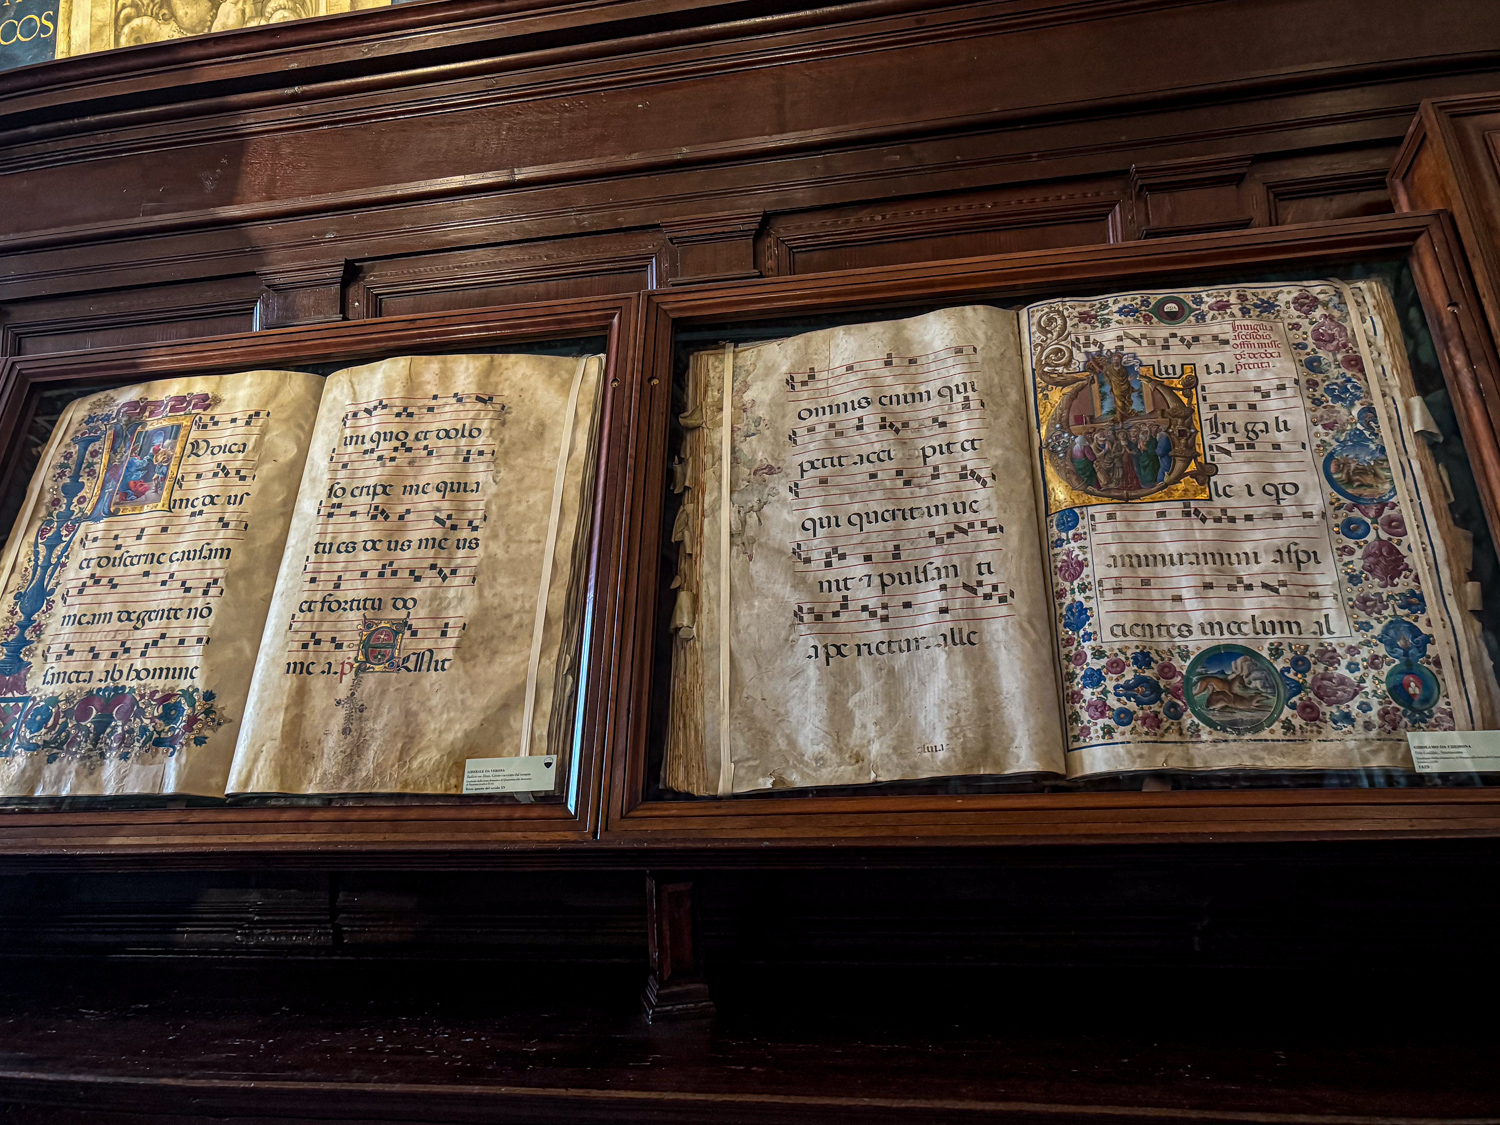 COS
udica
me de us
et discerne causam
meam de gente nō
sancta ab homine
in quo et dolo
so eripe me quia
tu es de us me us
et fortitu do
me a. p. Emit
omnis enim qui
petit acci pit et
qui querit inue
nit ⁊ pulsan ti
ape rietur. alle
luia
In vigilia
lu ia.
Viri gali
le i qd
ammiramini aspi
cientes in celum al
LIBERALE DA VERONA
GIROLAMO DA CREMONA